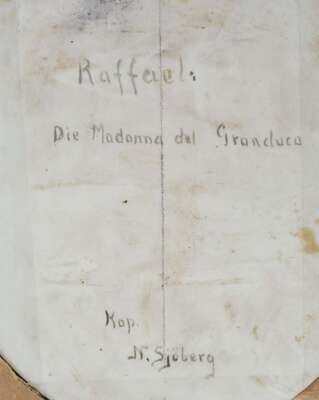 Raffael:
Die Madonna del Granduca
Kop.
N. Sjöberg